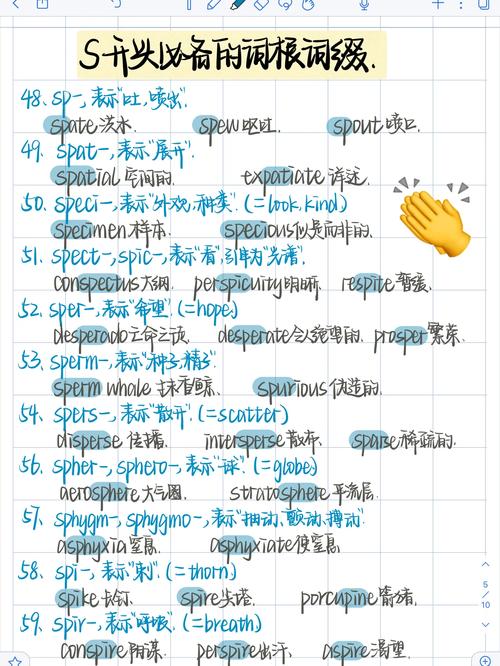 S开头必备的词根词缀.
48. sp-, 表示"吐, 喷出".
spate 洪水. spew 呕吐. spout 喷口.
49. spat-, 表示"展开".
spatial 空间的. expatiate 详述.
50. speci-, 表示"外观, 种类". (=look, kind)
specimen 样本. specious 似是而非的.
51. spect-, spic-, 表示"看", 引申为"光谱".
conspectus 大纲. perspicuity 明晰. respite 暂缓.
52. sper-, 表示"希望". (=hope)
desperado 亡命之徒. desperate 令人绝望的. prosper 繁荣.
53. sperm-, 表示"种子, 精子".
sperm whale 抹香鲸. spurious 伪造的.
54. spers-, 表示"散开". (=scatter)
disperse 传播. intersperse 散布. sparse 稀疏的.
56. spher-, sphero-, 表示"球". (=globe)
aerosphere 大气圈. stratosphere 平流层.
57. sphygm-, sphygmo-, 表示"抽动, 颤动, 搏动".
asphyxia 窒息. asphyxiate 使窒息
58. spi-, 表示"刺". (=thorn)
spike 长钉. spire 尖塔. porcupine 箭猪.
59. spir-, 表示"呼吸". (=breath)
conspire 阴谋. perspire 出汗. aspire 渴望.
5
10